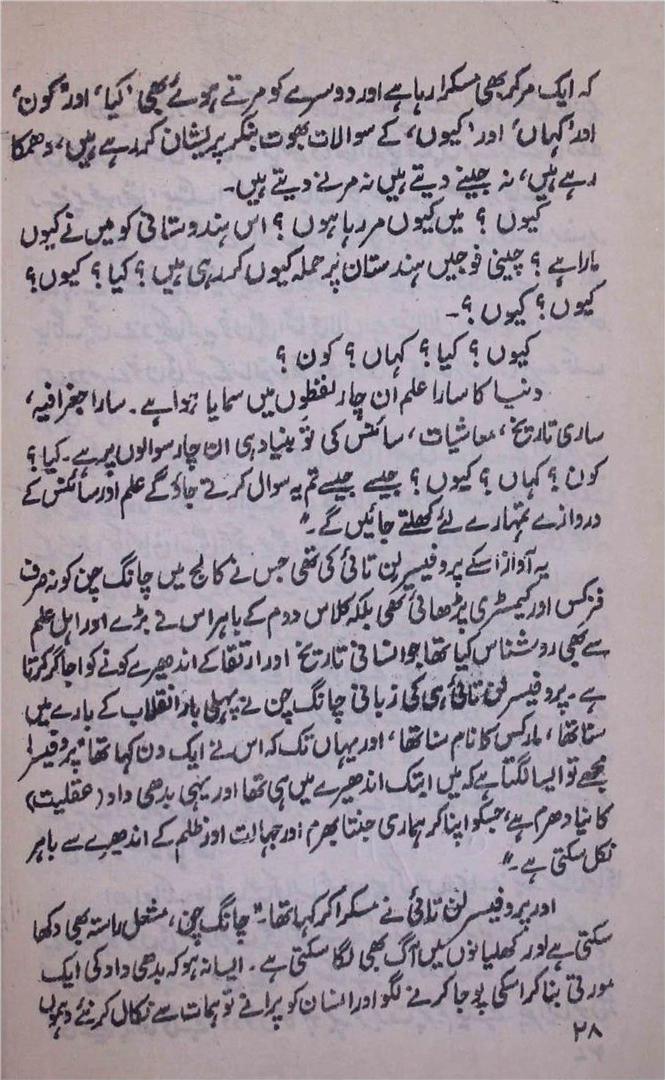 کہ ایک مرکر بھی مسکرا رہا ہے اور دوسرے کو مرتے ہوئے بھی 'کیا' اور 'کون'
اور 'کہاں' اور 'کیوں' کے سوالات بھوت بنکر پریشان کر رہے ہیں، دھمکا
رہے ہیں، نہ جینے دیتے ہیں نہ مرنے دیتے ہیں۔
کیوں ؟ میں کیوں مر رہا ہوں ؟ اس ہندوستانی کو میں نے کیوں
مارا ہے ؟ چینی فوجیں ہندستان پر حملہ کیوں کر رہی ہیں ؟ کیا ؟ کیوں ؟
کیوں ؟ کیوں ؟۔
کیوں ؟ کیا ؟ کہاں ؟ کون ؟
دنیا کا سارا علم ان چار لفظوں میں سمایا ہوا ہے۔ سارا جغرافیہ،
ساری تاریخ، معاشیات، سائنس کی تو بنیاد ہی ان چار سوالوں پر ہے۔ کیا ؟
کون ؟ کہاں ؟ کیوں ؟ جیسے جیسے تم یہ سوال کرتے جاؤ گے علم اور سائنس کے
دروازے تمہارے لئے کھلتے جائیں گے۔"
یہ آواز اسکے پروفیسر لن تائی کی تھی جس نے کالج میں چانگ چن کو نہ صرف
فزکس اور کیمسٹری پڑھائی تھی بلکہ کلاس روم کے باہر اس نے بڑے اور اہل علم
سے بھی روشناس کیا تھا جو انسانی تاریخ اور ارتقا کے اندھیرے کونے کو اجاگر کرتا
ہے۔ پروفیسر لن تائی ہی کی زبانی چانگ چن نے پہلی بار انقلاب کے بارے میں
سنا تھا، مارکس کا نام سنا تھا، اور یہاں تک کہ اس نے ایک دن کہا تھا "پروفیسر!
مجھے تو ایسا لگتا ہے کہ میں ابتک اندھیرے میں ہی تھا اور یہی بدھی واد (عقلیت)
کا نیا دھرم ہے، جسکو اپنا کر ہماری جنتا بھرم اور جہالت اور ظلم کے اندھیرے سے باہر
نکل سکتی ہے۔"
اور پروفیسر لن تائی نے مسکرا کر کہا تھا۔ "چانگ چن، مشعل راستہ بھی دکھا
سکتی ہے اور کھلیانوں میں آگ بھی لگا سکتی ہے۔ ایسا نہ ہو کہ بدھی واد کی ایک
مورتی بنا کر اسکی پوجا کرنے لگو اور انسان کو پرانے توہمات سے نکال کر نئے
۲۸